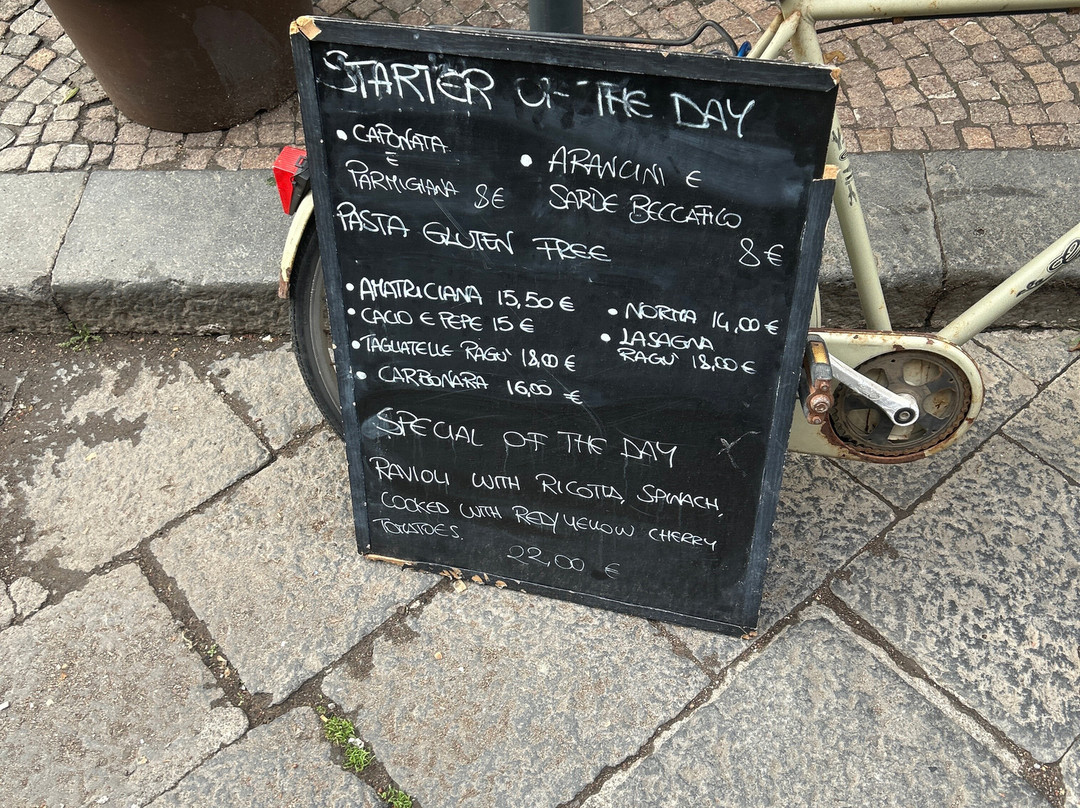 STARTER OF THE DAY
• CAPONATA
E
PARMIGIANA 8€
• ARANCINI E
SARDE BECCAFICO
8€
PASTA GLUTEN FREE
• AMATRICIANA 15,50 €
• CACIO E PEPE 15 €
• TAGLIATELLE RAGU' 18,00 €
• CARBONARA 16,00 €
• NORMA 14,00 €
• LASAGNA
RAGU' 18,00 €
SPECIAL OF THE DAY
RAVIOLI WITH RICOTTA, SPINACH,
COOKED WITH RED/YELLOW CHERRY
TOMATOES.
22,00 €